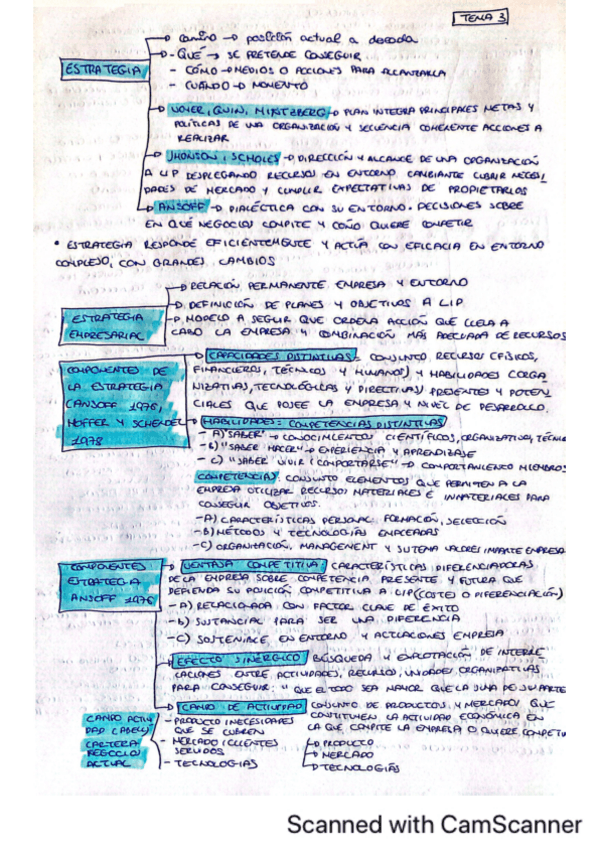 TEMA 3
ESTRATEGIA
Camino → posición actual a deseada
- QUÉ → SE PRETENDE CONSEGUIR
- CÓMO → MEDIOS O ACCIONES PARA ALCANZARLA
- CUÁNDO → MOMENTO
QUIN, MINTZBERG → PLAN INTEGRA PRINCIPALES METAS Y
POLÍTICAS DE UNA ORGANIZACIÓN Y SECUENCIA COHERENTE ACCIONES A
REALIZAR
JHONSON, SCHOLES → DIRECCIÓN Y ALCANCE DE UNA ORGANIZACIÓN
A L/P DESPLEGANDO RECURSOS EN ENTORNO CAMBIANTE CUBRIR NECESI
DADES DE MERCADO Y CUMPLIR EXPECTATIVAS DE PROPIETARIOS
ANSOFF → DIALÉCTICA CON SU ENTORNO. DECISIONES SOBRE
EN QUÉ NEGOCIOS COMPITE Y COMO QUIERE COMPETIR
* ESTRATEGIA RESPONDE EFICIENTEMENTE Y ACTÚA CON EFICACIA EN ENTORNO
COMPLEJO, CON GRANDES CAMBIOS
ESTRATEGIA
EMPRESARIAL
RELACIÓN PERMANENTE EMPRESA Y ENTORNO
DEFINICIÓN DE PLANES Y OBJETIVOS A L/P
MODELO A SEGUIR QUE ORDENA ACCIÓN QUE LLEVA A
CABO LA EMPRESA Y COMBINACIÓN MÁS ADECUADA DE RECURSOS
COMPONENTES DE
LA ESTRATEGIA
(ANSOFF 1976,
HOFFER Y SCHENDEL
1978
CAPACIDADES DISTINTIVAS: CONJUNTO RECURSOS (FÍSICOS,
FINANCIEROS, TÉCNICOS Y HUMANOS) Y HABILIDADES (ORGA
NIZATIVAS, TECNOLÓGICAS Y DIRECTIVAS) PRESENTES Y POTEN
CIALES QUE POSEE LA EMPRESA Y NIVEL DE DESARROLLO.
HABILIDADES: COMPETENCIAS DISTINTIVAS
- A) "SABER" → CONOCIMIENTOS CIENTÍFICOS, ORGANIZATIVO, TÉCNIC
- B) "SABER HACER" → EXPERIENCIA Y APRENDIZAJE
- C) "SABER VIVIR (COMPORTARSE)" → COMPORTAMIENTO MIEMBROS
COMPETENCIAS: CONJUNTO ELEMENTOS QUE PERMITEN A LA
EMPRESA UTILIZAR RECURSOS MATERIALES E INMATERIALES PARA
CONSEGUIR OBJETIVOS.
- A) CARACTERÍSTICAS PERSONAL: FORMACIÓN, SELECCIÓN
- B) MÉTODOS Y TECNOLOGÍAS EMPLEADAS
- C) ORGANIZACIÓN, MANAGEMENT Y SISTEMA VALORES IMPARTE EMPRESA
COMPONENTES
ESTRATEGIA
ANSOFF 1976
VENTAJA COMPETITIVA: CARACTERÍSTICAS DIFERENCIADORAS
DE LA EMPRESA SOBRE COMPETENCIA PRESENTE Y FUTURA QUE
DEFIENDA SU POSICIÓN COMPETITIVA A L/P (COSTES O DIFERENCIACIÓN)
- A) RELACIONADA CON FACTOR CLAVE DE ÉXITO
- b) SUSTANCIAL PARA SER UNA DIFERENCIA
- C) SOSTENIBLE EN ENTORNO Y ACTUACIONES EMPRESA
EFECTO SINÉRGICO BÚSQUEDA Y EXPLOTACIÓN DE INTERRE
LACIONES ENTRE ACTIVIDADES, RECURSOS, UNIDADES ORGANIZATIVAS
PARA CONSEGUIR: "QUE EL TODO SEA MAYOR QUE LA SUMA DE SUS PARTES
CAMPO DE ACTIVIDAD CONJUNTO DE PRODUCTOS Y MERCADOS QUE
CONSTITUYEN LA ACTIVIDAD ECONÓMICA EN
LA QUE COMPITE LA EMPRESA O QUIERE COMPETIR
CAMPO ACTIVI
DAD (ABELL)
CARTERA
NEGOCIOS
ACTUAL
- PRODUCTO (NECESIDADES
QUE SE CUBREN
- MERCADO (CLIENTES
SERVIDOS
- TECNOLOGÍAS
PRODUCTO
MERCADO
TECNOLOGÍAS
Scanned with CamScanner